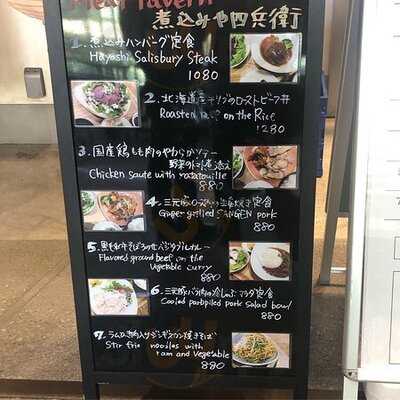 Meat Tavern
煮込みや四兵衛
1. 煮込みハンバーグ定食
Hayashi Salisbury Steak
1080
2. 北海道 のローストビーフ丼
Roasted on the Rice
1280
3. 国産鶏もも肉のやわらかソテー
野菜のトマト煮添え
Chicken saute with ratatouille
880
4. 三元豚ロースの生姜焼き定食
Ginger grilled SANGEN pork
880
5. 黒毛和牛そぼろの カレー
Flavored ground beef on the
vegetable curry
880
6. 三元豚バラ肉の冷しゃぶサラダ定食
Cooled pork salad bowl
880
7. ラム 焼きそば
Stir frie noodles with
ram and vegetable
880